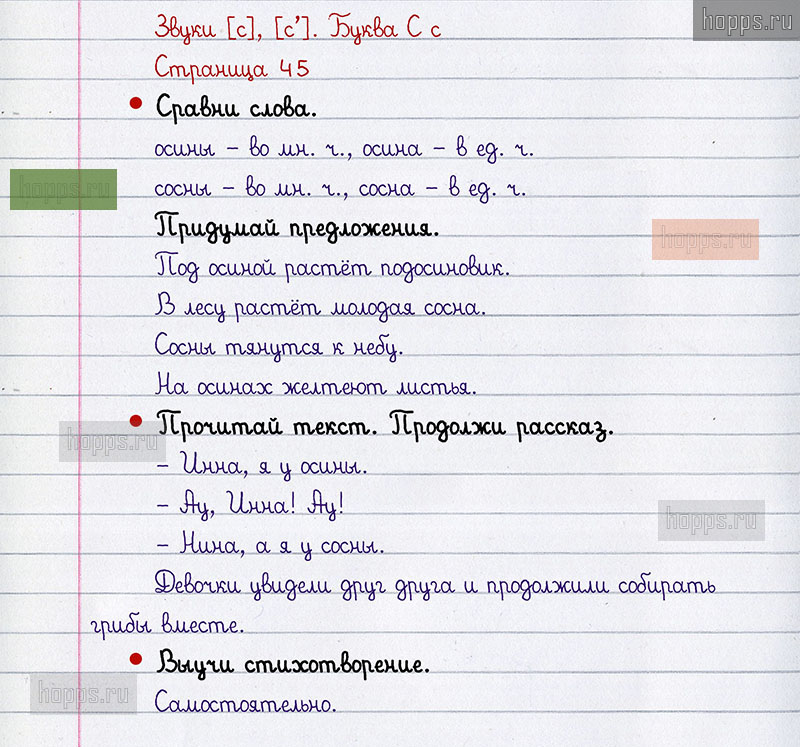 hopps.ru
Звуки [с], [с’]. Буква С с
Страница 45
• Сравни слова.
осины – во мн. ч., осина – в ед. ч.
сосны – во мн. ч., сосна – в ед. ч.
hopps.ru
Придумай предложения.
hopps.ru
Под осиной растёт подосиновик.
В лесу растёт молодая сосна.
Сосны тянутся к небу.
На осинах желтеют листья.
• Прочитай текст. Продолжи рассказ.
hopps.ru
– Инна, я у осины.
– Ау, Инна! Ау!
hopps.ru
– Нина, а я у сосны.
Девочки увидели друг друга и продолжили собирать
грибы вместе.
• Выучи стихотворение.
hopps.ru
Самостоятельно.